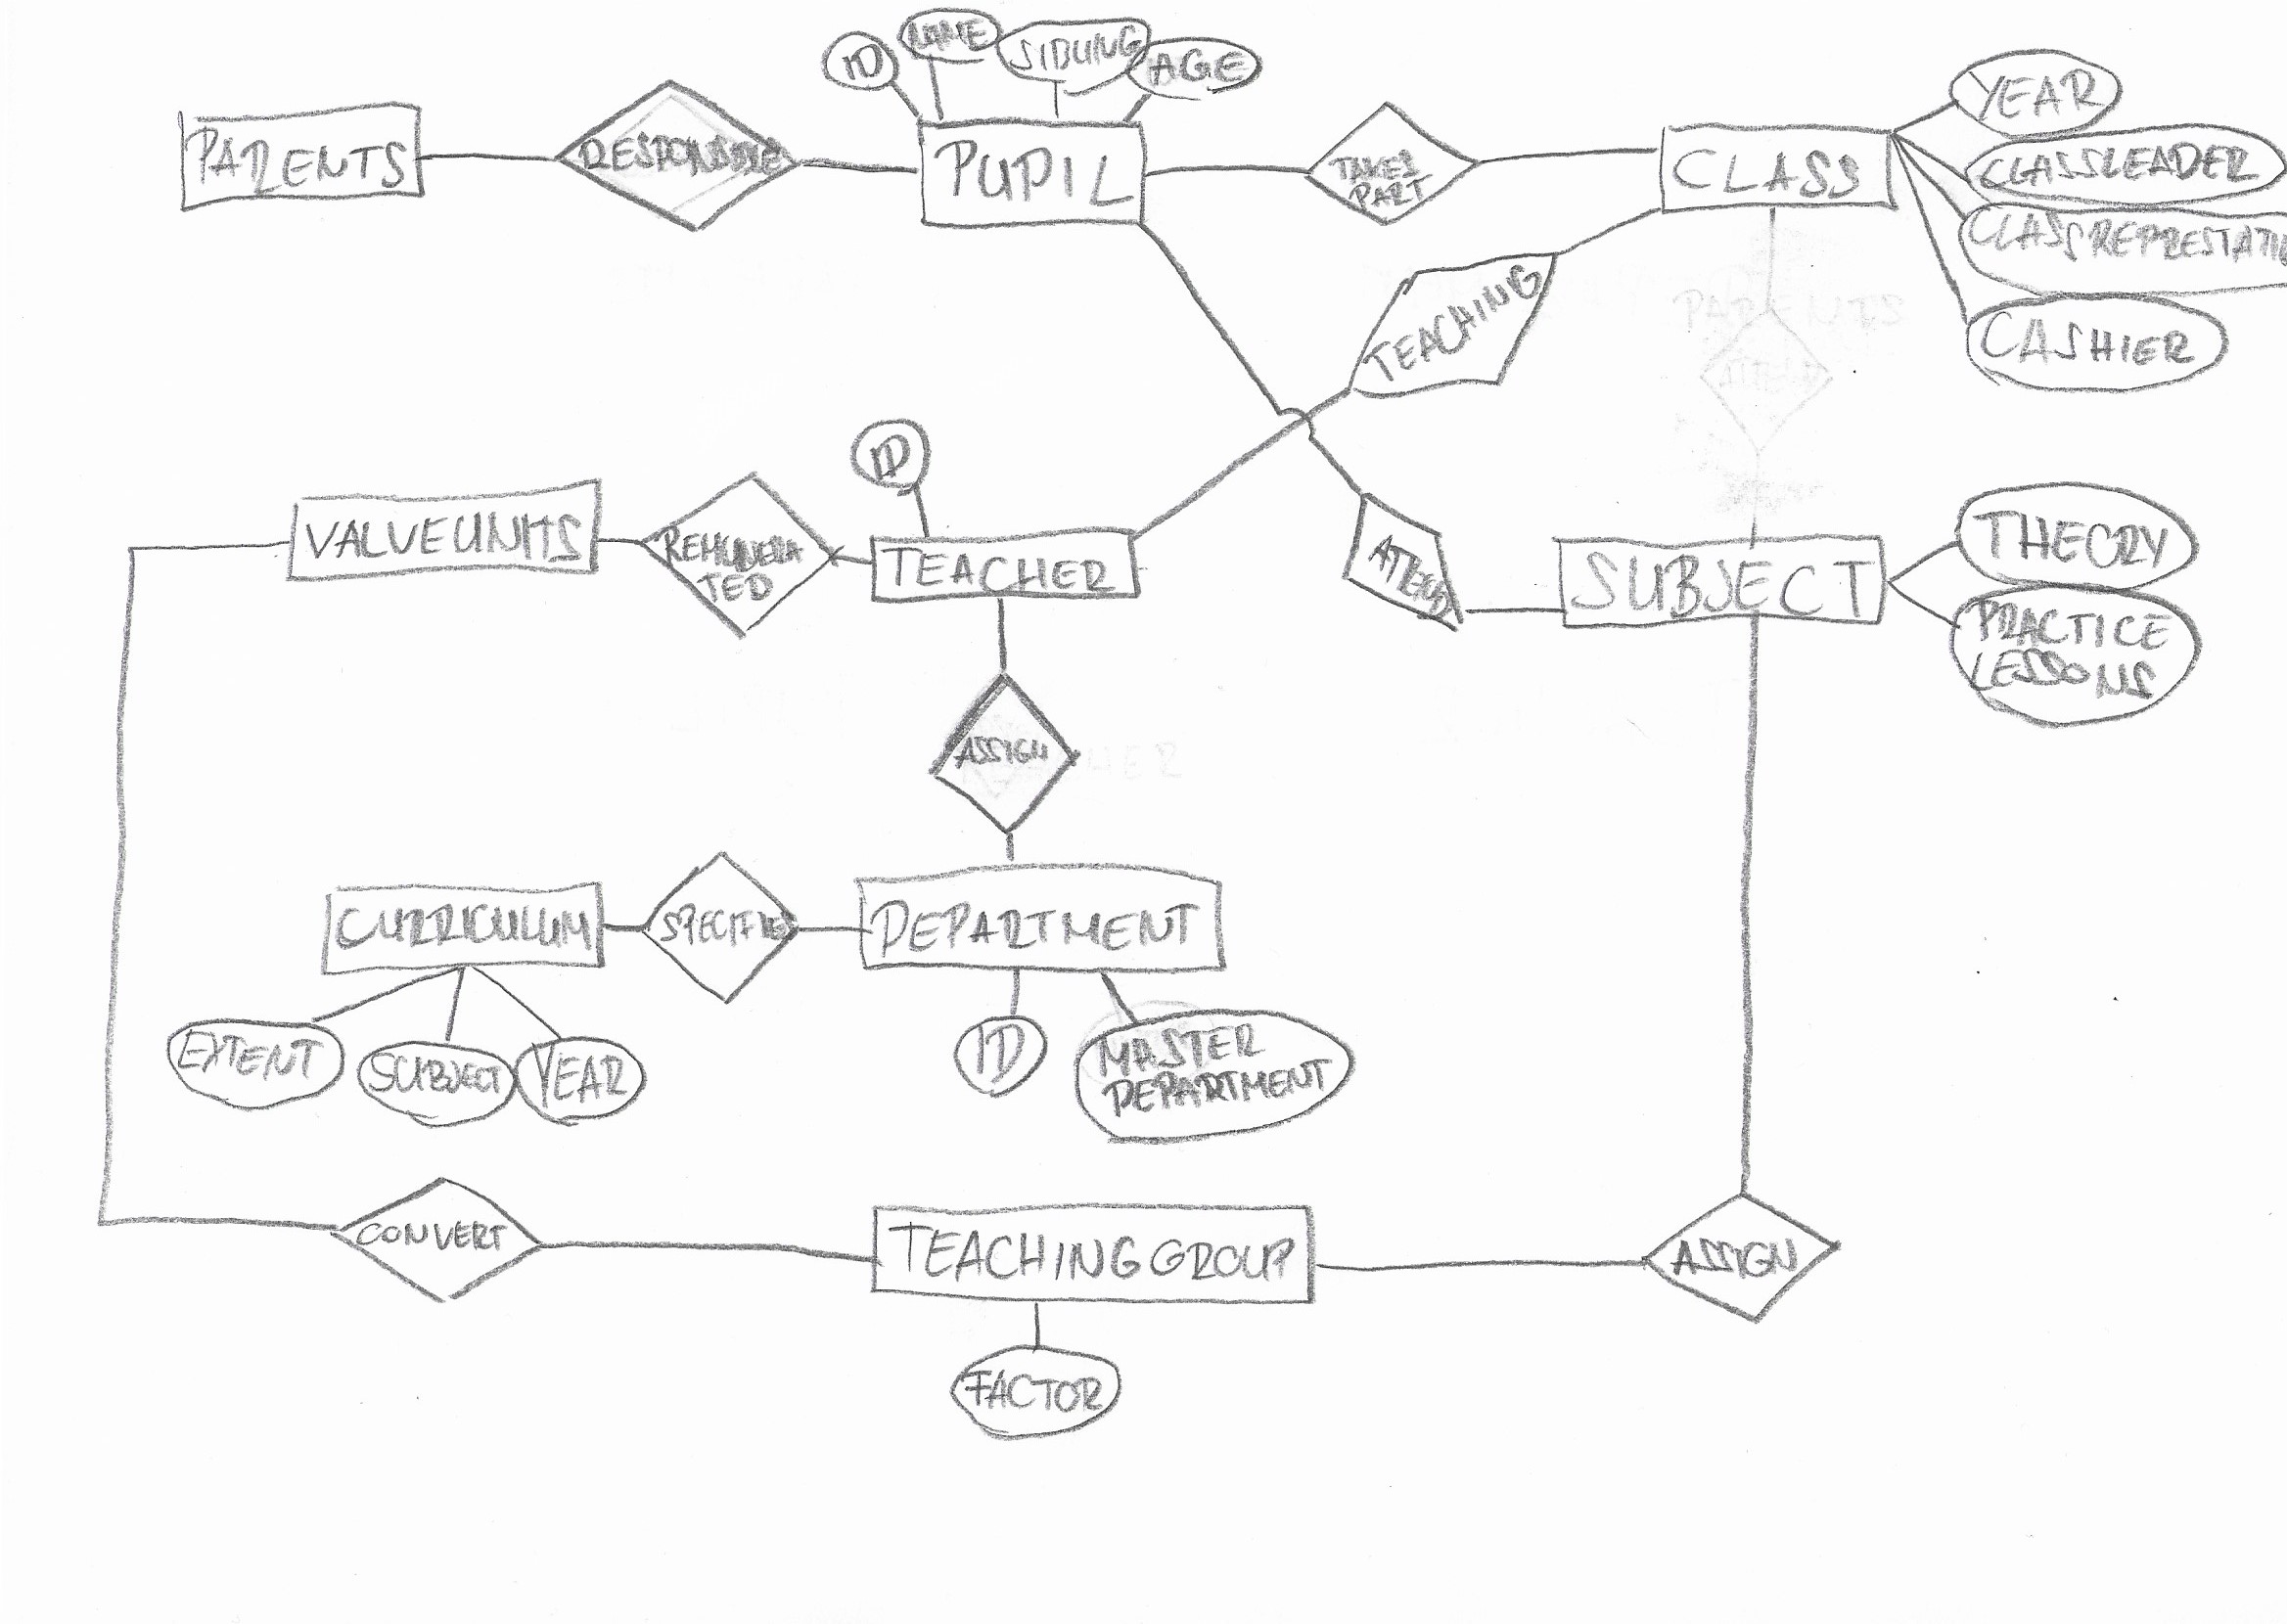 ID
NAME
SIBLING
AGE
YEAR
PARENTS
RESPONSIBLE
PUPIL
TAKES
PART
CLASS
CLASSLEADER
TEACHING
CASHIER
PARENTS
ID
VALUEUNITS
REMUNERA
TED
TEACHER
ATTEND
SUBJECT
THEORY
PRACTICE
LESSONS
ASSIGN
CURRICULUM
SPECIFIES
DEPARTMENT
EXTENT
SUBJECT
YEAR
ID
MASTER
DEPARTMENT
CONVERT
TEACHINGGROUP
ASSIGN
FACTOR